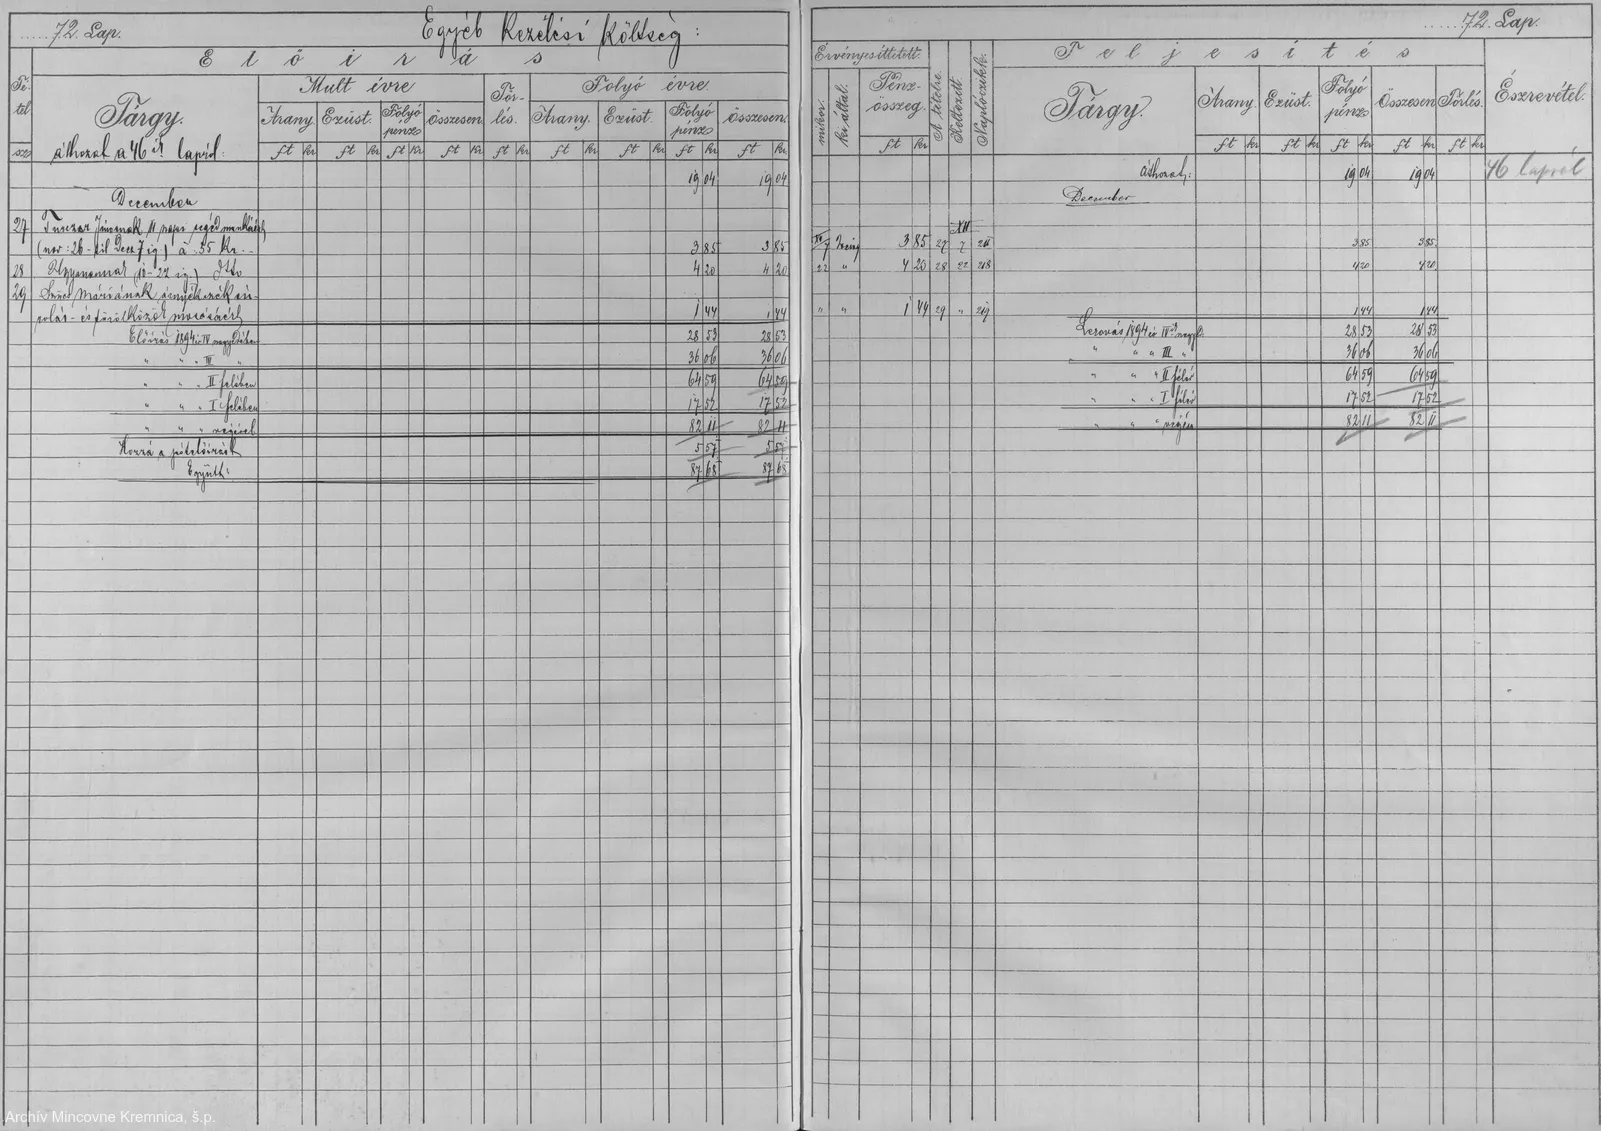 72. Lap.
Egyéb Kezelési költség:
Előirás
Té-
tel
sz
Tárgy.
Mult évre
Arany. Ezüst. Folyó pénz Összesen
Tör-
lés.
Folyó évre.
Arany. Ezüst. Folyó pénz Összesen.
ft kr ft kr ft kr ft kr ft kr ft kr ft kr ft kr ft kr
áthozat a 46 ik lapról:
19 04 19 04
December
27 Jánosnak 11 napi segédmunkáért
(nov: 26-tól Dec. 7 ig) à 35 kr. 3 85 3 85
28 Ugyanannak (10-22 ig) 4 20 4 20
29 Máriának árnyékszék sú-
rolás- és törölközők mosásáért 1 44 1 44
Előirás 1894 év IV negyedében 28 53 28 53
" " " III " 36 06 36 06
" " " II felében 64 59 64 59
" " " I felében 17 52 17 52
" " " végével 82 11 82 11
Hozzá a pótelőirások 5 57 5 57
Együtt: 87 68 87 68
72. Lap.
Érvényesittetett
mikor.
ki által.
Pénz-
összeg
ft kr
A tételre.
Keltezett.
Naplóczikk.
Teljesités
Tárgy.
Arany. Ezüst. Folyó pénz Összesen Törlés.
ft kr ft kr ft kr ft kr ft kr
Észrevétel.
áthozat: 19 04 19 04 46 lapról
December
XII
7 3 85 27 7 3 85 3 85
22 " 4 20 28 22 218 4 20 4 20
" " 1 44 29 " 219 1 44 1 44
Lerovás 1894 év IV negyed 28 53 28 53
" " " III " 36 06 36 06
" " " II félév 64 59 64 59
" " " I félév 17 52 17 52
" " " végén 82 11 82 11
Archív Mincovne Kremnica, š.p.